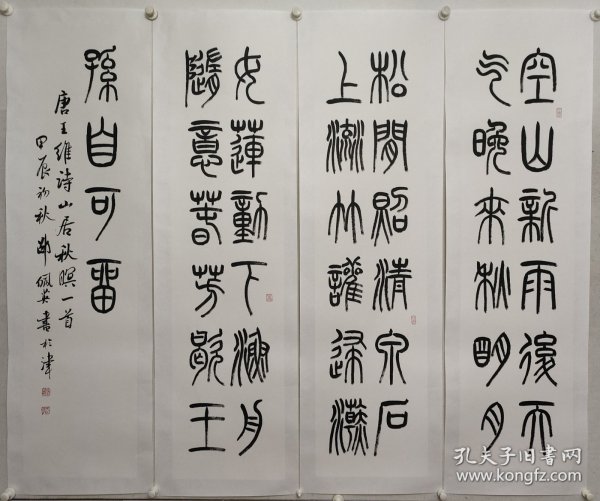 空山新雨後天
气晚来秋明月
松間照清泉石
上流竹諠歸浣
女蓮動下漁舟
隨意春芳歇王
孫自可留
唐王維詩山居秋暝一首
甲辰初秋鄭佩英書於津
孔夫子旧书网
www.kongfz.com